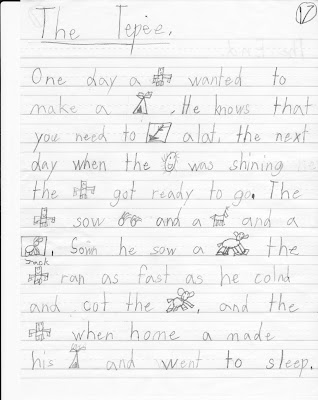 17
The Tepee.
One day a wanted to
make a . He knows that
you need to alat, the next
day when the was shining
the got ready to go. The
sow and a and a
. Soon he sow a the
Jack
ran as fast as he colnd
and cot the , and the
when home a made
his and went to sleep.